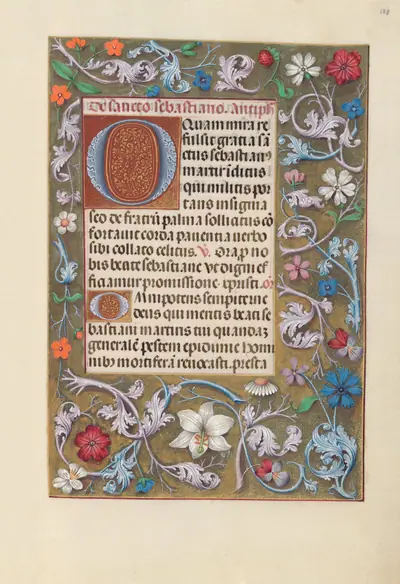 De sancto sebastiano. antiph
O Quam mira re
fulsit gratia sā
ctus sebastian⁹
martir inclitus
qui militis por
tans insignia
sed de fratrū palma sollicitus cō
fortavit corda paventia verbo
sibi collato celitus. V. Ora p no
bis beate sebastiane. Vt digni ef
ficiamur promissione. xpristi. Or
Omnipotens sempiterne
deus qui meritis beati se
bastiani martiris tui quandā
generalē pestem epidimie homi
nib⁹ mortiferā revocasti. presta